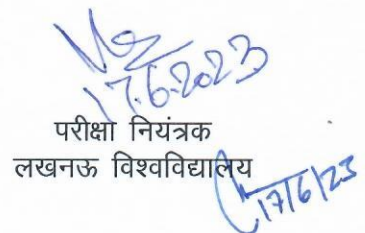 17.6.2023
परीक्षा नियंत्रक
लखनऊ विश्वविद्यालय
17/6/23